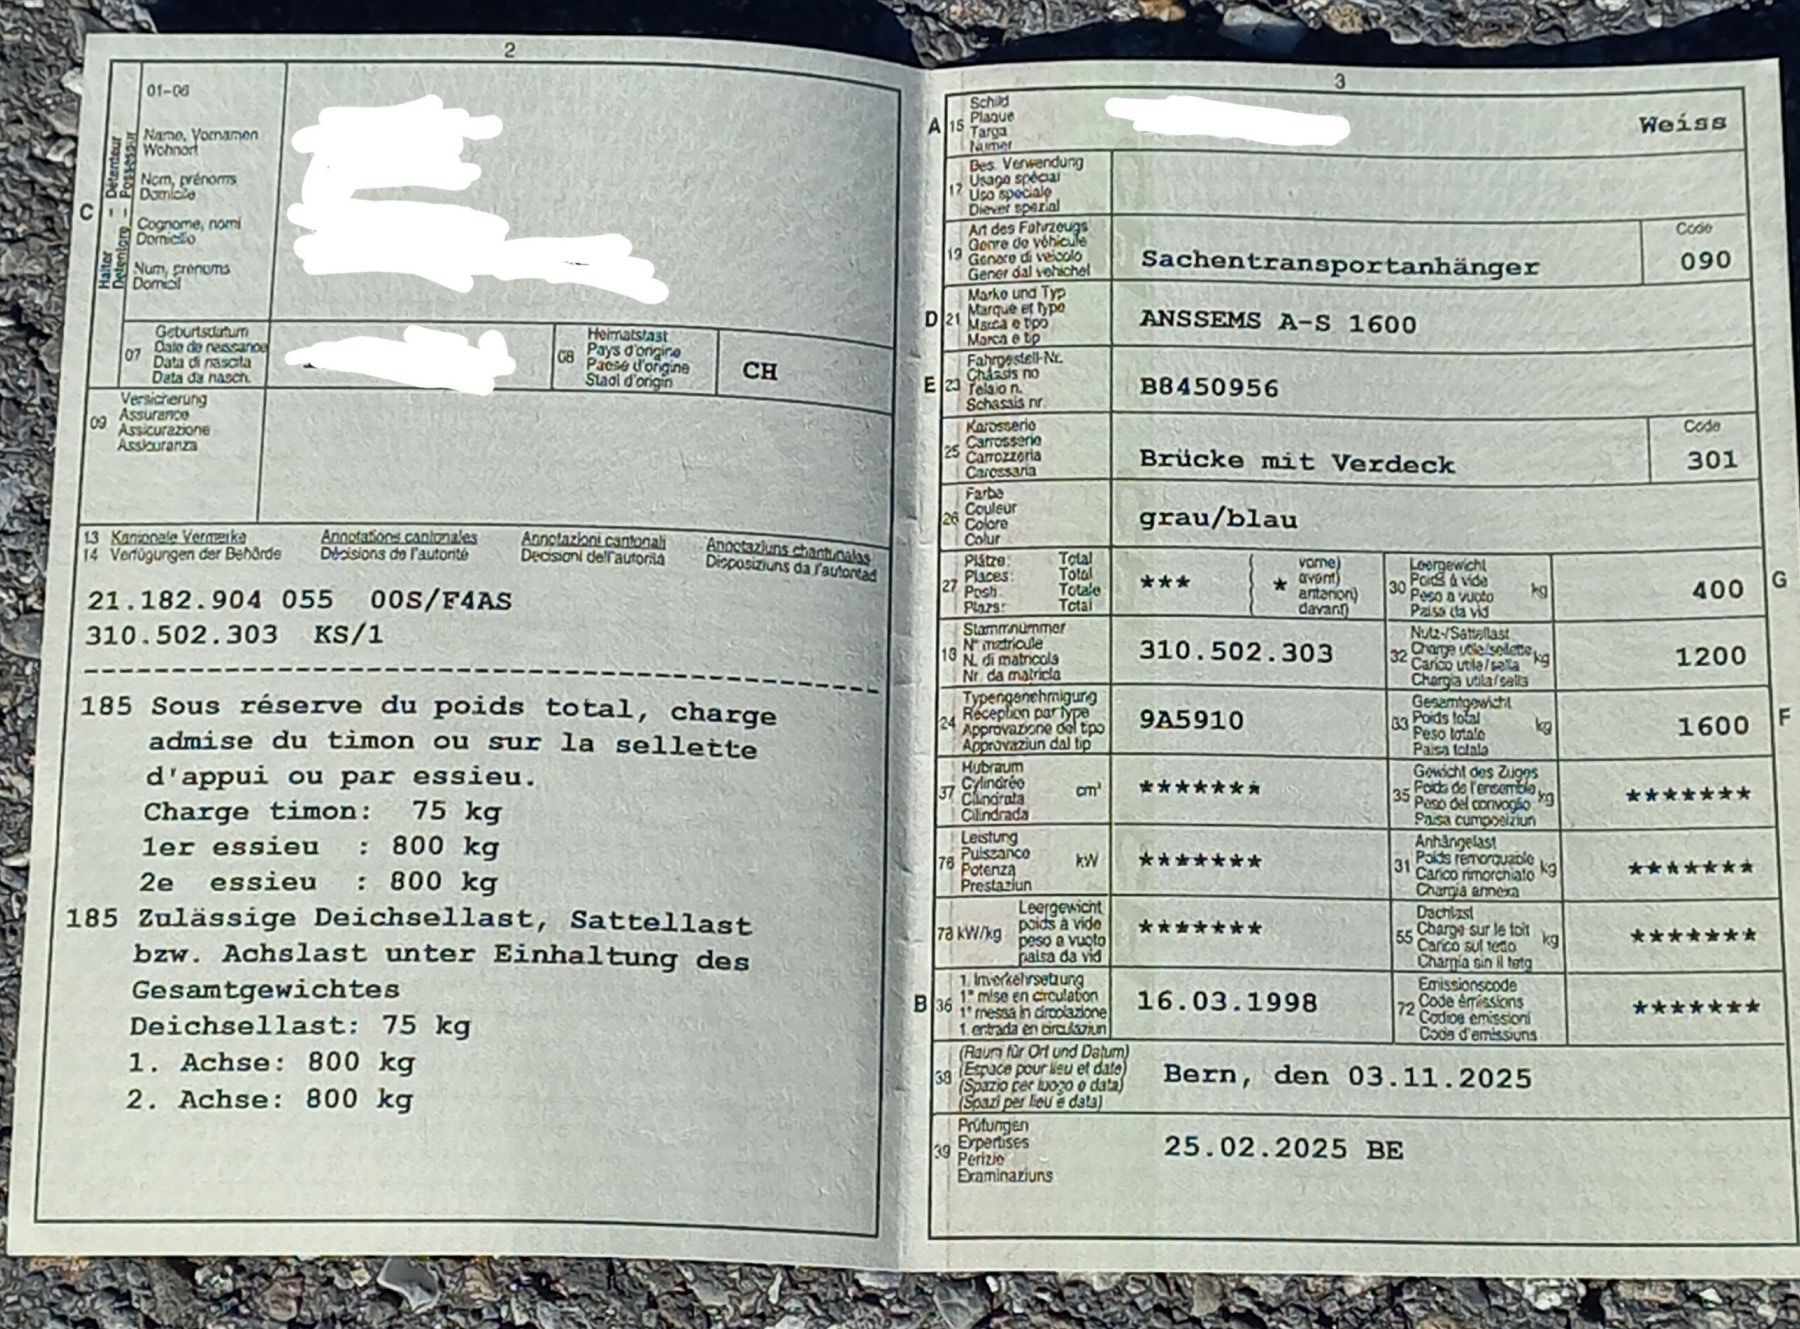 2
01-06
Name, Vornamen
Wohnort
Nom, prénoms
Domicile
Cognome, nomi
Domicilio
Num, prenums
Domicil
C
Halter – Détenteur
Detentore – Possessur
07
Geburtsdatum
Date de naissance
Data di nascita
Data da nasch.
08
Heimatstaat
Pays d'origine
Paese d'origine
Stadi d'origin
CH
09
Versicherung
Assurance
Assicurazione
Assicuranza
13 Kantonale Vermerke Annotations cantonales Annotazioni cantonali Annotaziuns chantunalas
14 Verfügungen der Behörde Décisions de l'autorité Decisioni dell'autorità Disposiziuns da l'autoritad
21.182.904 055 00S/F4AS
310.502.303 KS/1
185 Sous réserve du poids total, charge
admise du timon ou sur la sellette
d'appui ou par essieu.
Charge timon: 75 kg
1er essieu : 800 kg
2e essieu : 800 kg
185 Zulässige Deichsellast, Sattellast
bzw. Achslast unter Einhaltung des
Gesamtgewichtes
Deichsellast: 75 kg
1. Achse: 800 kg
2. Achse: 800 kg
3
A 15
Schild
Plaque
Targa
Numer
Weiss
17
Bes. Verwendung
Usage spécial
Uso speciale
Diever spezial
19
Art des Fahrzeugs
Genre de véhicule
Genere di veicolo
Gener dal vehichel
Sachentransportanhänger
Code
090
D 21
Marke und Typ
Marque et type
Marca e tipo
Marca e tip
ANSSEMS A-S 1600
E 23
Fahrgestell-Nr.
Châssis no
Telaio n.
Schassis nr.
B8450956
25
Karosserie
Carrosserie
Carrozzeria
Carossaria
Brücke mit Verdeck
Code
301
26
Farbe
Couleur
Colore
Colur
grau/blau
27
Plätze: Total
Places: Total
Posti: Totale
Plazs: Total
***
* vorne)
avant)
anteriori)
davant)
30
Leergewicht
Poids à vide kg
Peso a vuoto
Paisa da vid
400
G
18
Stammnummer
N° matricule
N. di matricola
Nr. da matricla
310.502.303
32
Nutz-/Sattellast
Charge utile/sellette kg
Carico utile/sella
Chargia utila/sella
1200
24
Typengenehmigung
Réception par type
Approvazione del tipo
Approvaziun dal tip
9A5910
33
Gesamtgewicht
Poids total kg
Peso totale
Paisa totala
1600
F
37
Hubraum
Cylindrée cm³
Cilindrata
Cilindrada
*******
35
Gewicht des Zuges
Poids de l'ensemble kg
Peso del convoglio
Paisa cumposiziun
*******
76
Leistung
Puissance kW
Potenza
Prestaziun
*******
31
Anhängelast
Poids remorquable kg
Carico rimorchiato
Chargia annexa
*******
78 kW/kg
Leergewicht
poids à vide
peso a vuoto
paisa da vid
*******
55
Dachlast
Charge sur le toit kg
Carico sul tetto
Chargia sin il tetg
*******
B 36
1. Inverkehrsetzung
1re mise en circulation
1a messa in circolazione
1. entrada en circulaziun
16.03.1998
72
Emissionscode
Code émissions
Codice emissioni
Code d'emissiuns
*******
38
(Raum für Ort und Datum)
(Espace pour lieu et date)
(Spazio per luogo e data)
(Spazi per lieu e data)
Bern, den 03.11.2025
39
Prüfungen
Expertises
Perizie
Examinaziuns
25.02.2025 BE